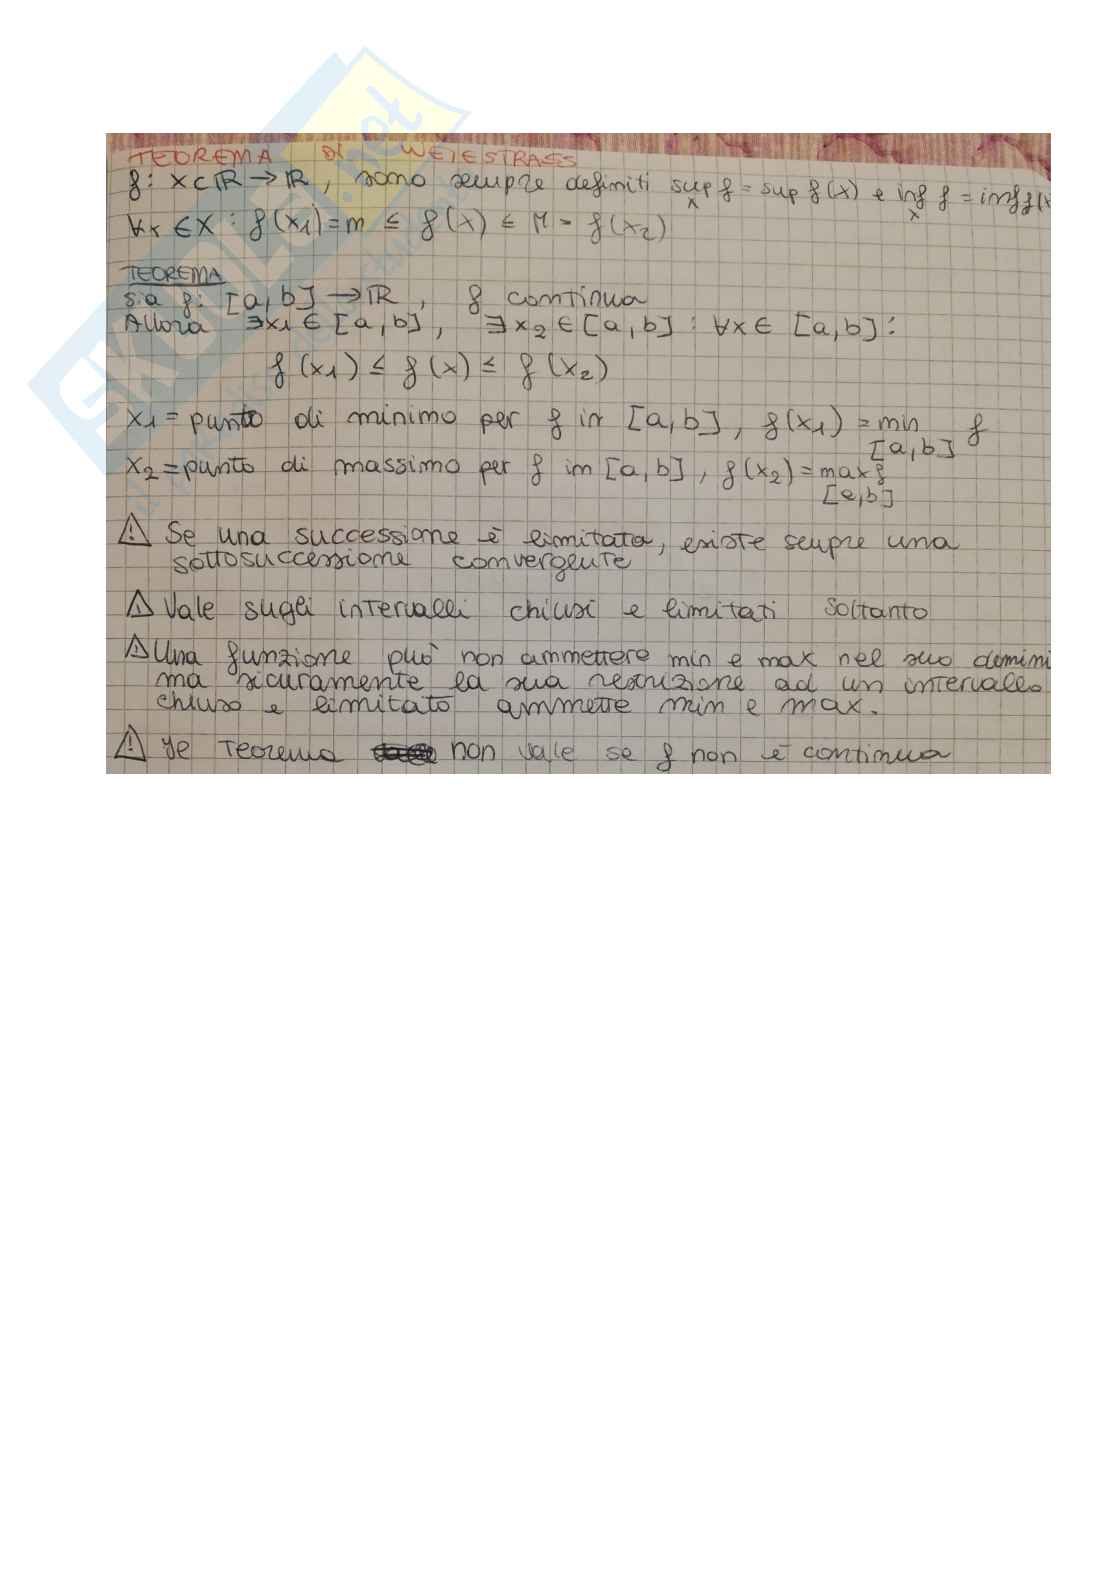 TEOREMA DI WEIESTRASS
f: X⊂ℝ → ℝ, sono sempre definiti sup f = sup f(x) e inf f = inf f(x
X X
∀x ∈ X : f(x₁) = m ≤ f(x) ≤ M = f(x₂)
TEOREMA
sia f: [a,b] → ℝ, f continua
Allora ∃x₁ ∈ [a,b], ∃x₂ ∈ [a,b] : ∀x ∈ [a,b] :
f(x₁) ≤ f(x) ≤ f(x₂)
x₁ = punto di minimo per f in [a,b], f(x₁) = min f
[a,b]
x₂ = punto di massimo per f in [a,b], f(x₂) = max f
[a,b]
⚠ Se una successione è limitata, esiste sempre una
sottosuccessione convergente
⚠ Vale sugli intervalli chiusi e limitati soltanto
⚠ Una funzione può non ammettere min e max nel suo domini
ma sicuramente la sua restrizione ad un intervallo
chiuso e limitato ammette min e max.
⚠ Il teorema non vale se f non è continua
SKUOLA.net